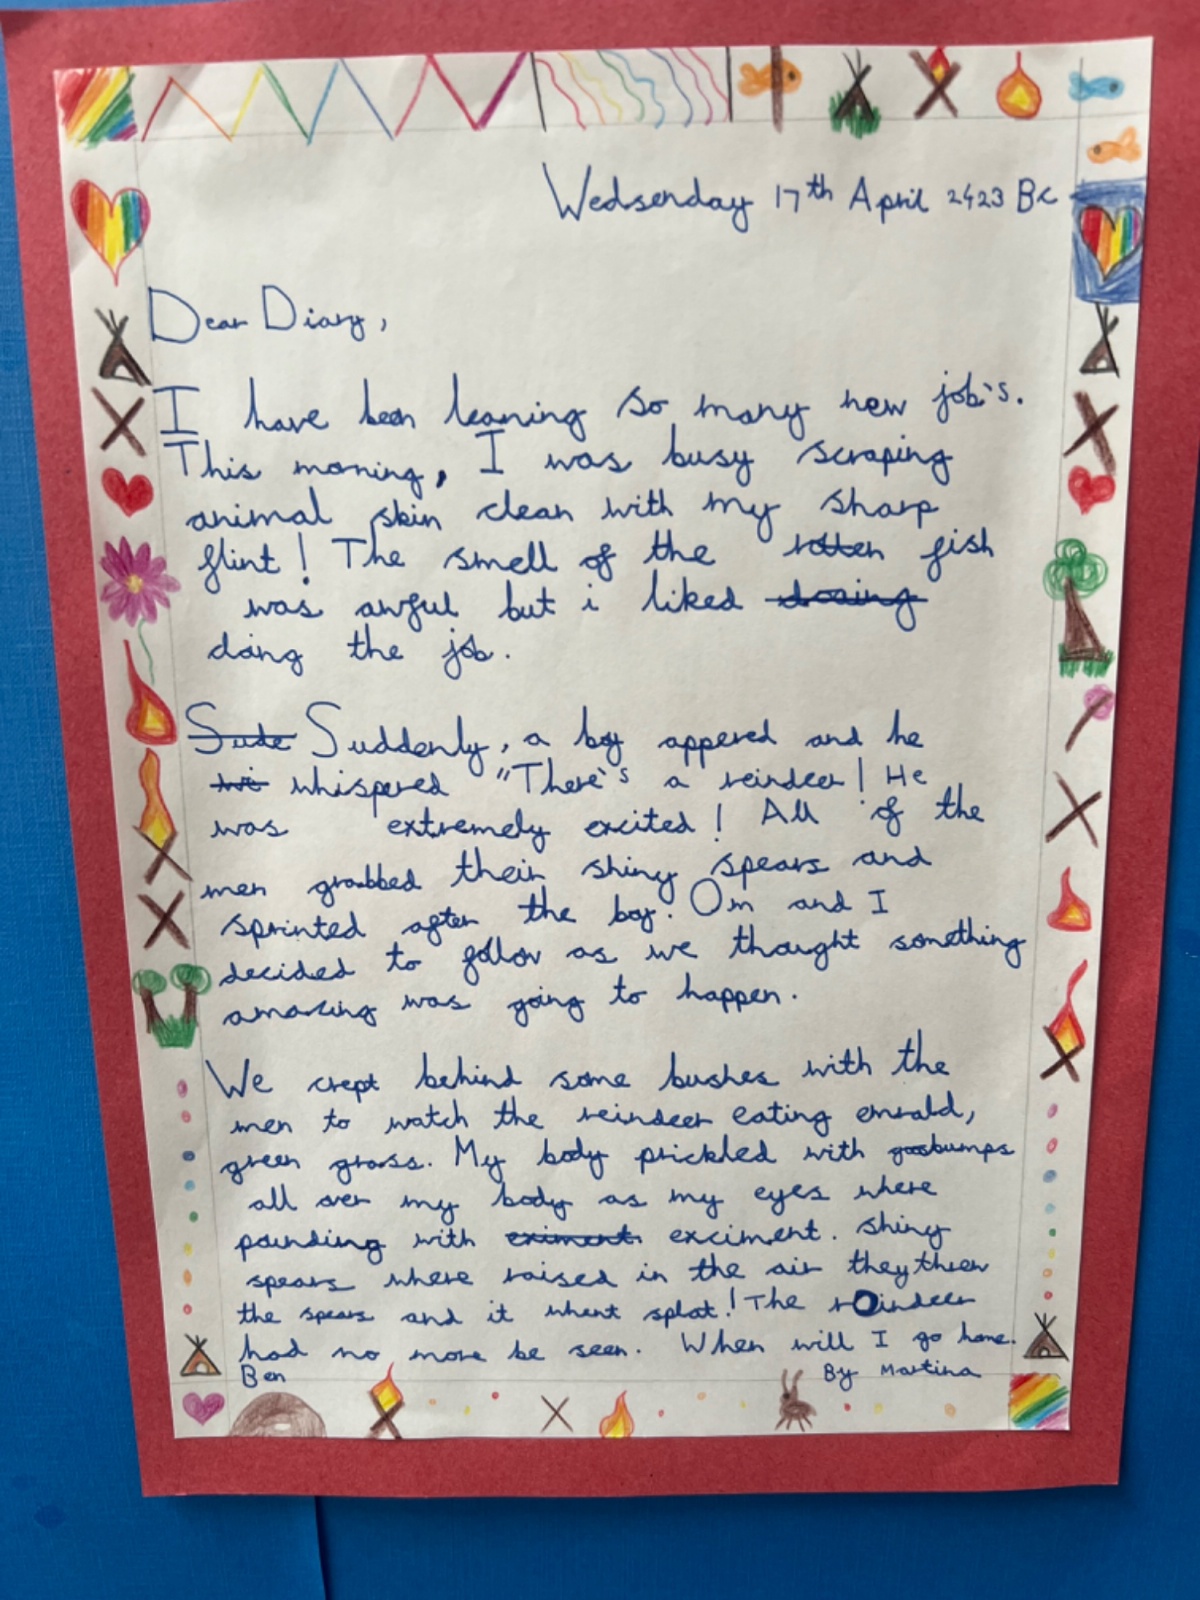 Wedsenday 17th April 2423 BC
Dear Diary,
I have been leaning so many new job's.
This moning, I was busy scraping
animal skin clean with my sharp
flint! The smell of the rotten fish
was awful but i liked doaing
doing the job.
Sude Suddenly, a boy appered and he
wi whispered "There's a reindeer! He
was extremely excited! All of the
men grabbed their shiny spears and
sprinted after the boy. Om and I
decided to follow as we thought something
amazing was going to happen.
We crept behind some bushes with the
men to watch the reindeer eating emrald,
green grass. My body prickled with goosbumps
all over my body as my eyes where
pounding with eximent. exciment. Shiny
spears where raised in the air they threw
the spears and it whent splat! The reindeer
had no more be seen. When will I go home.
Ben
By Martina